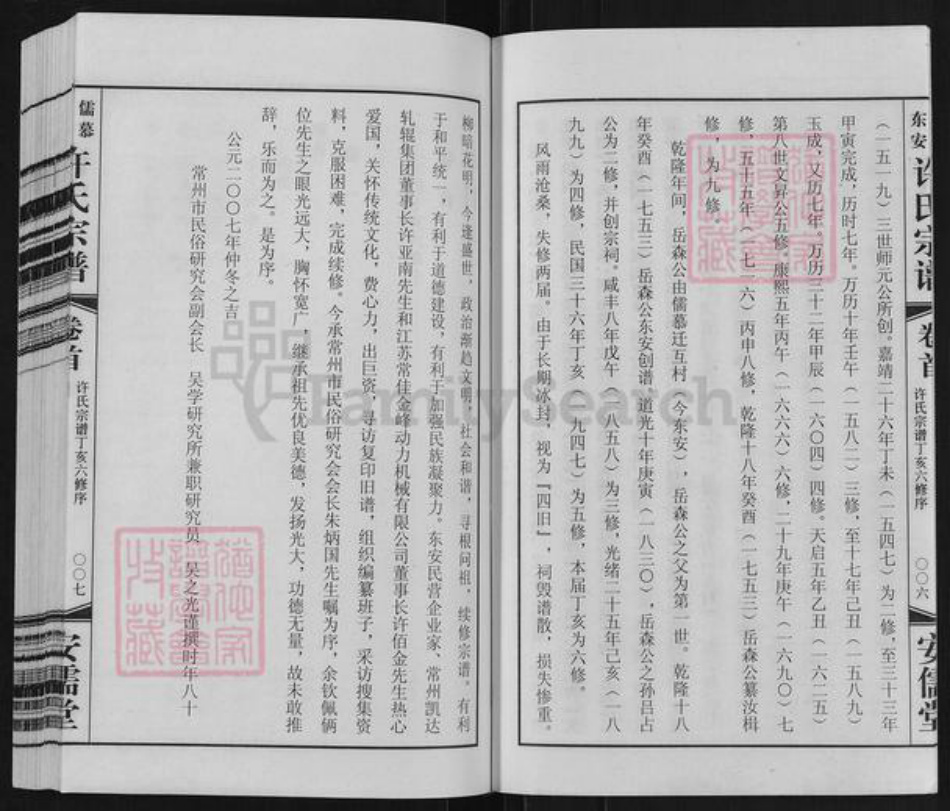 东安 许氏宗谱 卷首 许氏宗谱丁亥六修序 〇〇六 安儒堂
（一五一九）三世师元公所创。嘉靖二十六年丁未（一五四七）为二修，至三十三年
甲寅完成，历时七年。万历十年壬午（一五八二）三修，至十七年己丑（一五八九）
玉成，又历七年。万历三十二年甲辰（一六〇四）四修。天启五年乙丑（一六二五）
第八世文昇公五修。康熙五年丙午（一六六六）六修，二十九年庚午（一六九〇）七
修，五十五年（一七一六）丙申八修，乾隆十八年癸酉（一七五三）岳森公纂汝楫
修，为九修。
乾隆年间，岳森公由儒慕迁互村（今东安），岳森公之父为第一世。乾隆十八
年癸酉（一七五三）岳森公东安创谱。道光十年庚寅（一八三〇），岳森公之孙吕占
公为二修，并创宗祠。咸丰八年戊午（一八五八）为三修，光绪二十五年己亥（一八
九九）为四修，民国三十六年丁亥（一九四七）为五修，本届丁亥为六修。
风雨沧桑，失修两届。由于长期冰封，视为『四旧』，祠毁谱散，损失惨重。
柳暗花明，今逢盛世，政治渐趋文明，社会和谐，寻根问祖，续修宗谱。有利
于和平统一，有利于道德建设，有利于加强民族凝聚力。东安民营企业家、常州凯达
轧辊集团董事长许亚南先生和江苏常佳金峰动力机械有限公司董事长许佰金先生热心
爱国，关怀传统文化，费心力，出巨资，寻访复印旧谱，组织编纂班子，采访搜集资
料，克服困难，完成续修。今承常州市民俗研究会会长朱炳国先生嘱为序，余钦佩俩
位先生之眼光远大，胸怀宽广，继承祖先优良美德，发扬光大，功德无量，故未敢推
辞，乐而为之。是为序。
公元二〇〇七年仲冬之吉
常州市民俗研究会副会长 吴学研究所兼职研究员 吴之光谨撰时年八十
儒慕 许氏宗谱 卷首 许氏宗谱丁亥六修序 〇〇七 安儒堂
FamilySearch